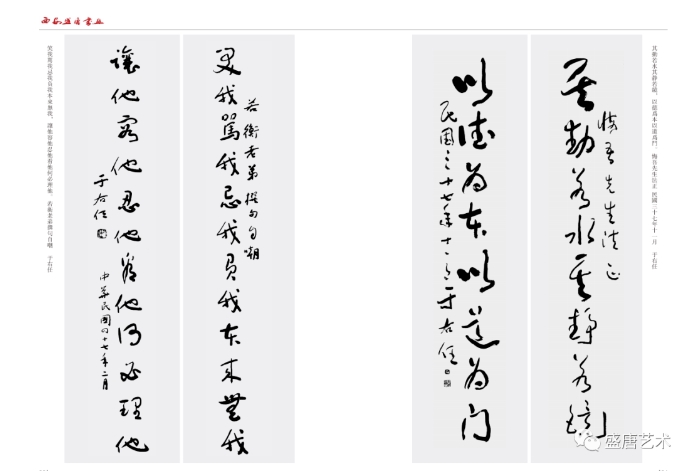 其動若水其靜若鏡,以德爲本以道爲門 悔吾先生法正 民國三十七年十一月 于右任
悔吾先生法正
其動若水其靜若鏡
以德为本以道为门
民国三十七年十一月 于右任
若衡老弟撰句自嘲
笑我罵我忌我負我本来無我
讓他容他忍他看他何必理他
于右任
中華民國四十七年二月
笑我罵我忌我負我本來無我,讓他容他忍他看他何必理他 若衡老弟撰句自嘲 于右任
盛唐艺术